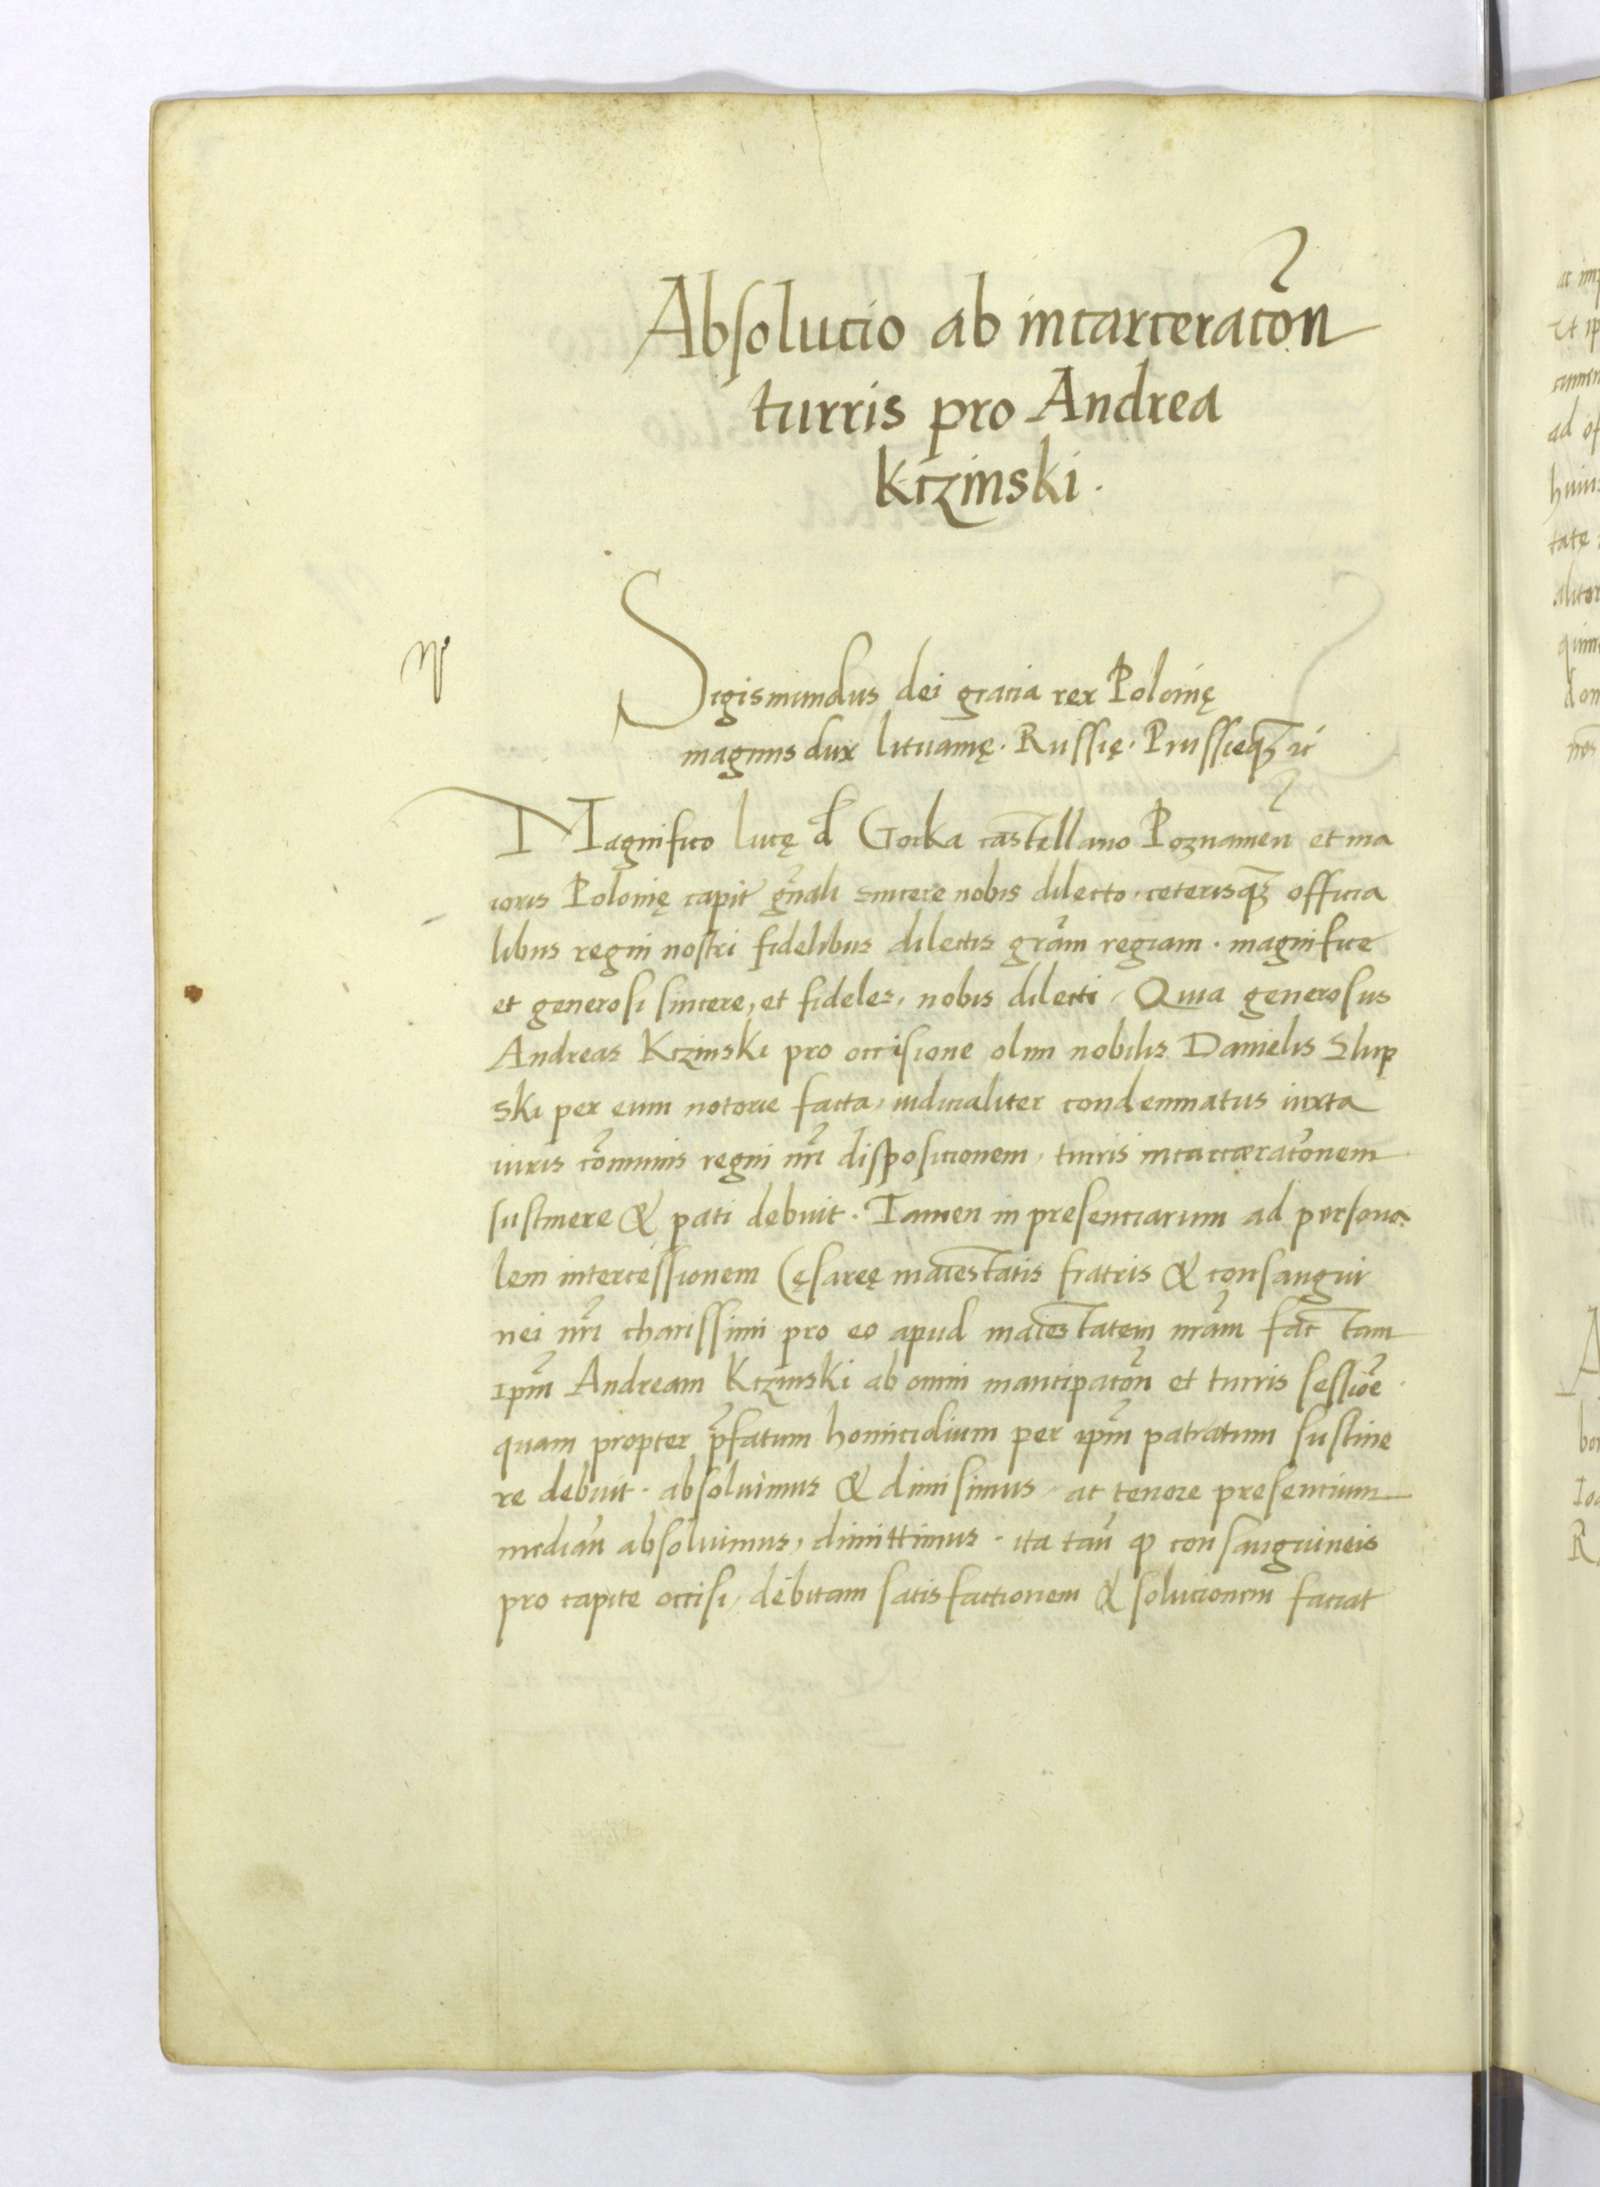 Absolucio ab incarceracōn
turris pro Andrea
Kczinski.
Sigismundus dei gracia rex Polonię
magnus dux lituanię. Russię. Prussieqȝ ıc̄
Magnifico lucę d̄ Gorka castellano Poznanien̄ et ma
ioris Polonię capit̄ gn̄ali sincere nobis dilecto, ceterisqȝ officia
libus regni nostri fidelibus dilectis grām regiam. magnifice
et generosi sincere, et fideles, nobis dilecti, Quia generosus
Andreas Kczinski pro occisione olim nobilis Danielis Slup
ski per eum notorie facta, iudicialiter condemnatus iuxta
iuris cōmunis regni nr̄i disposicionem, turris incarceracōnem
sustinere & pati debuit. Tamen in presenciarum ad persona
lem intercessionem Cęsareę maiestatis fratris & consangui
nei nr̄i charissimi pro eo apud maiestatem nrām fac tam
ipm̄ Andream Kczinski ab omni mancipacōn et turris sessiōe
quam propter p̄fatum homicidium per ipm̄ patratum sustine
re debuit. absoluimus & dimisimus, ac tenore presencium
median̄ absoluimus, dimittimus. ita tan̄ ꝙ consanguineis
pro capite occisi, debitam satisfactionem & solucionem faciat
ac
et
ad